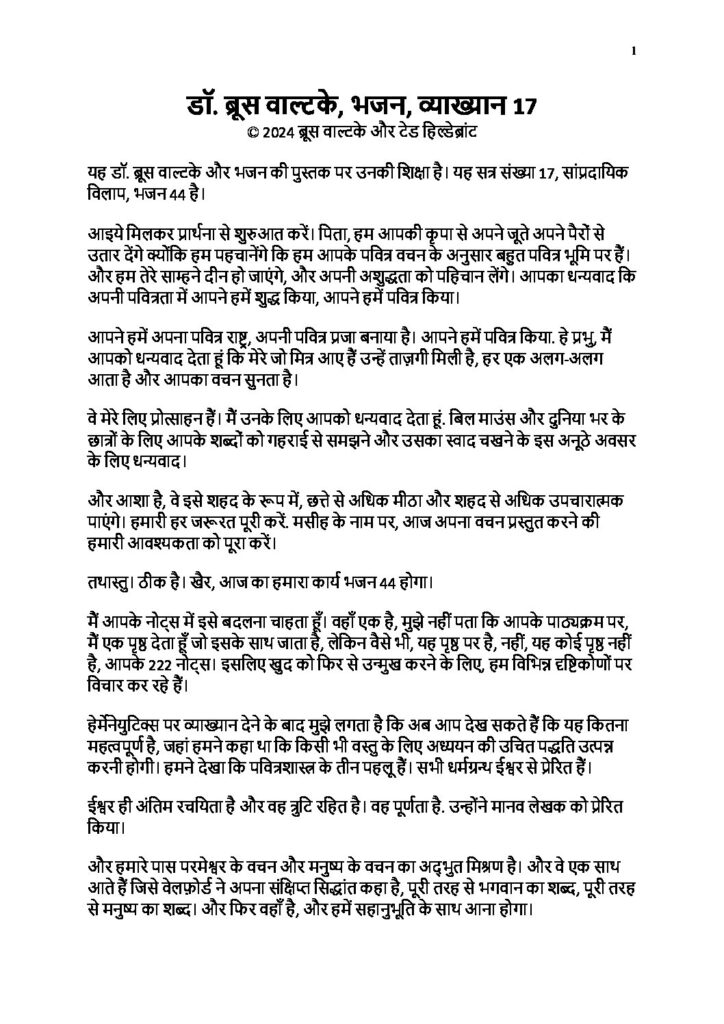 1
डॉ. ब्रूस वाल्टके, भजन, व्याख्यान 17
© 2024 ब्रूस वाल्टके और टेड हिल्डेब्रांट
यह डॉ. ब्रूस वाल्टके और भजन की पुस्तक पर उनकी शिक्षा है। यह सत्र संख्या 17, सांप्रदायिक
विलाप, भजन 44 है।
आइये मिलकर प्रार्थना से शुरुआत करें। पिता, हम आपकी कृपा से अपने जूते अपने पैरों से
उतार देंगे क्योंकि हम पहचानेंगे कि हम आपके पवित्र वचन के अनुसार बहुत पवित्र भूमि पर हैं।
और हम तेरे साम्हने दीन हो जाएंगे, और अपनी अशुद्धता को पहिचान लेंगे। आपका धन्यवाद कि
अपनी पवित्रता में आपने हमें शुद्ध किया, आपने हमें पवित्र किया।
आपने हमें अपना पवित्र राष्ट्र, अपनी पवित्र प्रजा बनाया है। आपने हमें पवित्र किया. हे प्रभु, मैं
आपको धन्यवाद देता हूं कि मेरे जो मित्र आए हैं उन्हें ताज़गी मिली है, हर एक अलग-अलग
आता है और आपका वचन सुनता है।
वे मेरे लिए प्रोत्साहन हैं। मैं उनके लिए आपको धन्यवाद देता हूं. बिल माउंस और दुनिया भर के
छात्रों के लिए आपके शब्दों को गहराई से समझने और उसका स्वाद चखने के इस अनूठे अवसर
के लिए धन्यवाद।
और आशा है, वे इसे शहद के रूप में, छत्ते से अधिक मीठा और शहद से अधिक उपचारात्मक
पाएंगे। हमारी हर जरूरत पूरी करें. मसीह के नाम पर, आज अपना वचन प्रस्तुत करने की
हमारी आवश्यकता को पूरा करें।
तथास्तु। ठीक है। खैर, आज का हमारा कार्य भजन 44 होगा।
मैं आपके नोट्स में इसे बदलना चाहता हूँ। वहाँ एक है, मुझे नहीं पता कि आपके पाठ्यक्रम पर,
मैं एक पृष्ठ देता हूँ जो इसके साथ जाता है, लेकिन वैसे भी, यह पृष्ठ पर है, नहीं, यह कोई पृष्ठ नहीं
है, आपके 222 नोट्स। इसलिए खुद को फिर से उन्मुख करने के लिए, हम विभिन्न दृष्टिकोणों पर
विचार कर रहे हैं।
हेर्मेनेयुटिक्स पर व्याख्यान देने के बाद मुझे लगता है कि अब आप देख सकते हैं कि यह कितना
महत्वपूर्ण है, जहां हमने कहा था कि किसी भी वस्तु के लिए अध्ययन की उचित पद्धति उत्पन्न
करनी होगी। हमने देखा कि पवित्रशास्त्र के तीन पहलू हैं। सभी धर्मग्रन्थ ईश्वर से प्रेरित हैं।
ईश्वर ही अंतिम रचयिता है और वह त्रुटि रहित है। वह पूर्णता है. उन्होंने मानव लेखक को प्रेरित
किया।
और हमारे पास परमेश्वर के वचन और मनुष्य के वचन का अद्भुत मिश्रण है। और वे एक साथ
आते हैं जिसे वेलफ़ोर्ड ने अपना संक्षिप्त सिद्धांत कहा है, पूरी तरह से भगवान का शब्द, पूरी तरह
से मनुष्य का शब्द। और फिर वहाँ है, और हमें सहानुभूति के साथ आना होगा।